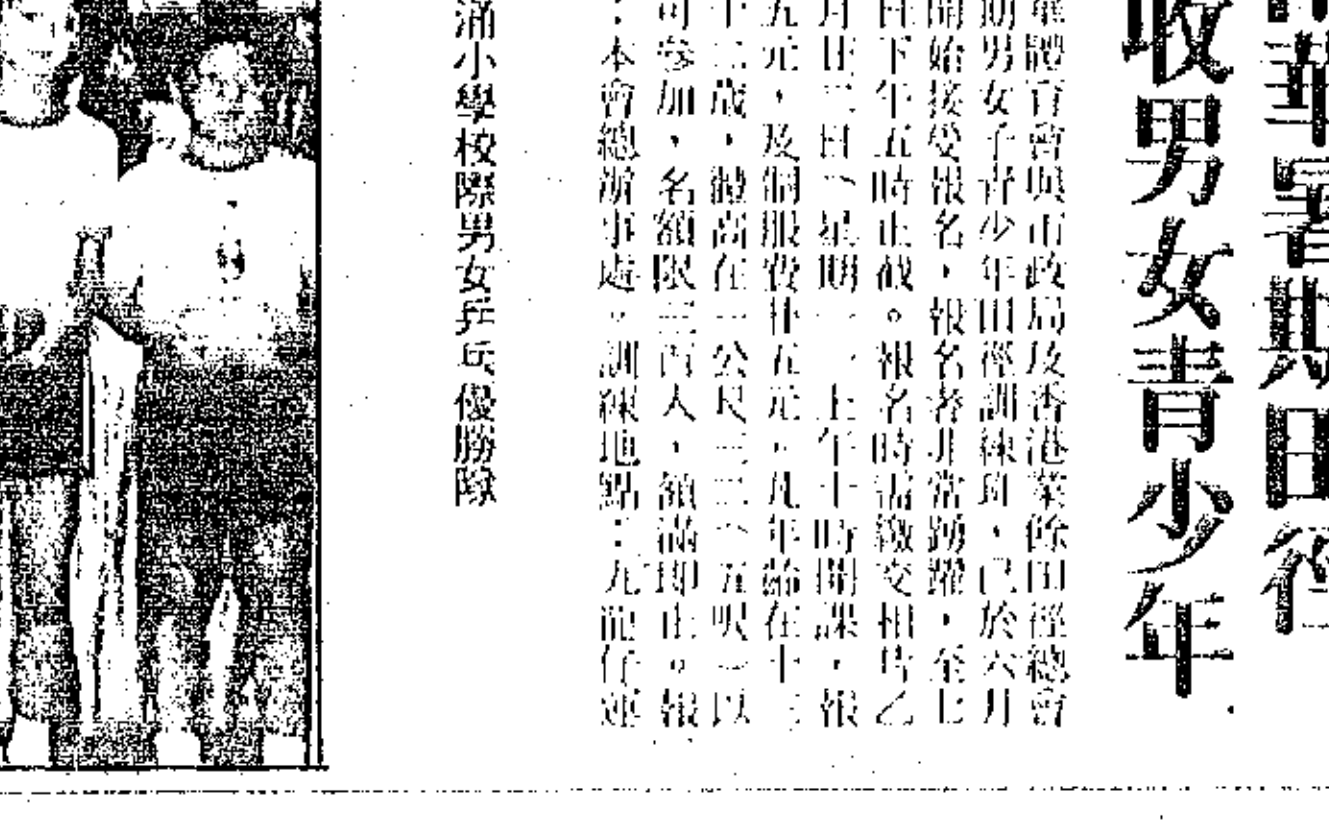 華暑期田徑
收男女青少年
華體育會與市政局及香港業餘田徑總會
期男女子青少年田徑訓練班,已於六月
開始接受報名,報名者非常踴躍,至七
日下午五時止截。報名時需繳交相片乙
月廿二日(星期一)上午十時開課,報
五元,及個服費廿五元。凡年齡在十三
十二歲,體高在一公尺三二(五呎)以
可參加,名額限三百人,額滿即止。報
:本會總辦事處。訓練地點:九龍仔運
涌小學校際男女乒乓優勝隊